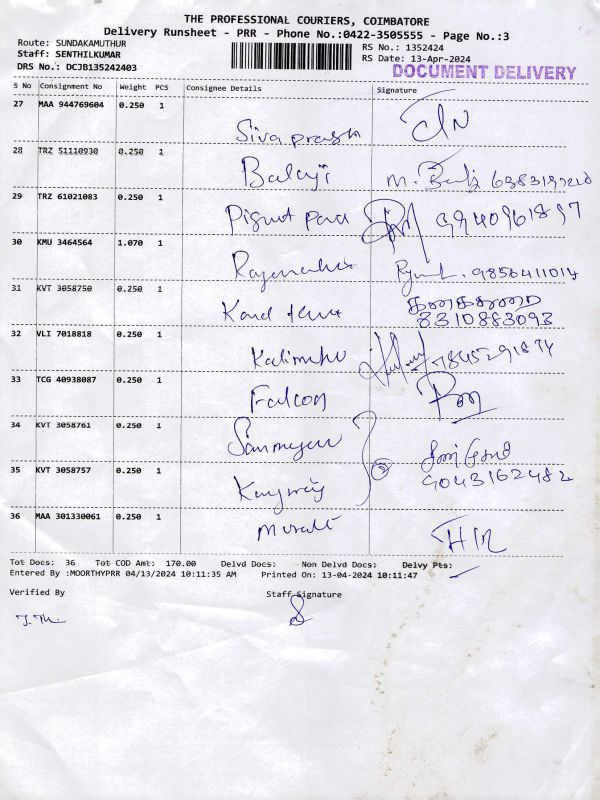 THE PROFESSIONAL COURIERS, COIMBATORE
Delivery Runsheet - PRR - Phone No.:0422-3505555 - Page No.:3
Route: SUNDAKAMUTHUR
RS No.: 1352424
Staff: SENTHILKUMAR
RS Date: 13-Apr-2024
DRS No.: DCJB135242403
DOCUMENT DELIVERY
S No Consignment No Weight PCS Consignee Details Signature
27 MAA 944769604 0.250 1
28 TRZ 51110930 0.250 1 Balaji
29 TRZ 61021083 0.250 1 9940961897
30 KMU 3464564 1.070 1 9856411014
31 KVT 3058750 0.250 1
8310883093
32 VLI 7018818 0.250 1
33 TCG 40938087 0.250 1 Falcon
34 KVT 3058761 0.250 1
35 KVT 3058757 0.250 1 9043162482
36 MAA 301330061 0.250 1
Tot Docs: 36 Tot COD Amt: 170.00 Delvd Docs: Non Delvd Docs: Delvy Pts:
Entered By :MOORTHYPRR 04/13/2024 10:11:35 AM Printed On: 13-04-2024 10:11:47
Verified By Staff Signature